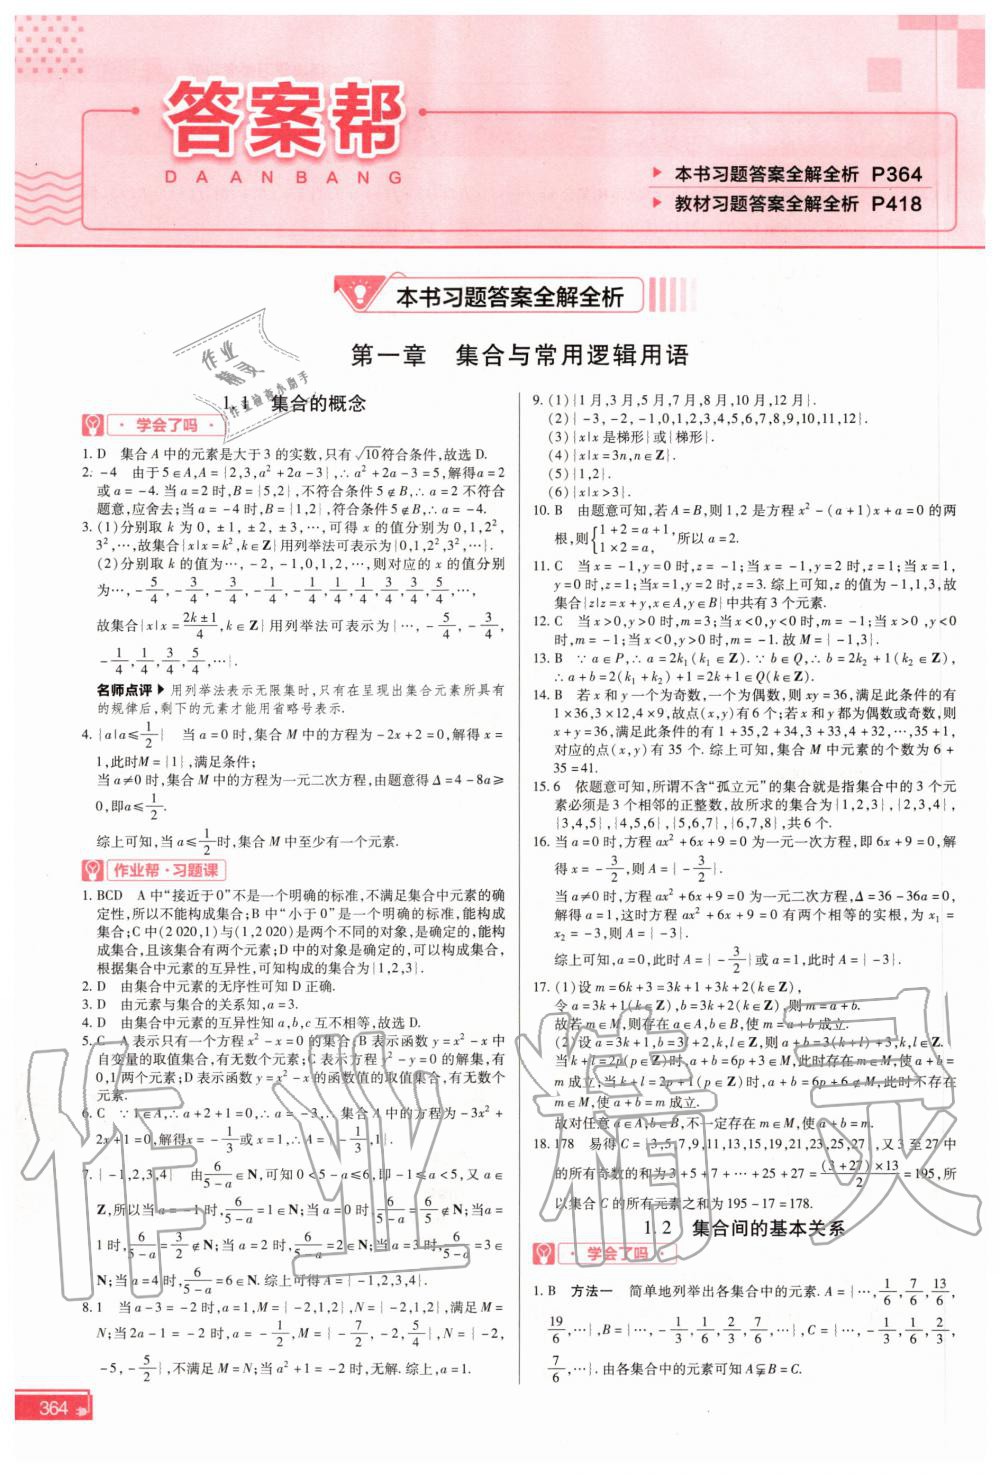 答案帮
DAANBANG
本书习题答案全解全析 P364
教材习题答案全解全析 P418
本书习题答案全解全析
第一章 集合与常用逻辑用语
1.1 集合的概念
· 学会了吗 ·
1. D 集合 A 中的元素是大于 3 的实数,只有 √10 符合条件,故选 D.
2. -4 由于 5∈A,A={2,3,a²+2a-3},∴a²+2a-3=5,解得a=2
或 a=-4. 当 a=2 时,B={5,2},不符合条件 5∉B,∴a=2 不符合
题意,应舍去;当 a=-4 时,B={1,2},符合条件 5∉B,∴a=-4.
3. (1)分别取 k 为 0,±1,±2,±3,…,可得 x 的值分别为 0,1,2²,
3²,…,故集合{x|x=k²,k∈Z}用列举法可表示为{0,1,2²,3²,…}.
(2)分别取 k 的值为…,-2,-1,0,1,2,…,则对应的 x 的值分别
为…,-5/4,-3/4,-3/4,-1/4,-1/4,1/4,1/4,3/4,3/4,5/4,…,
故集合{x|x=(2k±1)/4,k∈Z}用列举法可表示为{…,-5/4,-3/4,
-1/4,1/4,3/4,5/4,…}.
名师点评 ▶ 用列举法表示无限集时,只有在呈现出集合元素所具有
的规律后,剩下的元素才能用省略号表示.
4. {a|a≤1/2} 当 a=0 时,集合 M 中的方程为-2x+2=0,解得 x=
1,此时M={1},满足条件;
当 a≠0 时,集合 M 中的方程为一元二次方程,由题意得 Δ=4-8a≥
0,即a≤1/2.
综上可知,当 a≤1/2时,集合 M 中至少有一个元素.
作业帮·习题课
1. BCD A 中“接近于 0”不是一个明确的标准,不满足集合中元素的确
定性,所以不能构成集合;B 中“小于 0”是一个明确的标准,能构成
集合;C 中(2 020,1)与(1,2 020)是两个不同的对象,是确定的,能构
成集合,且该集合有两个元素;D 中的对象是确定的,可以构成集合,
根据集合中元素的互异性,可知构成的集合为{1,2,3}.
2. D 由集合中元素的无序性可知 D 正确.
3. D 由元素与集合的关系知,a=3.
4. D 由集合中元素的互异性知 a,b,c 互不相等,故选 D.
5. C A 表示只有一个方程 x²-x=0 的集合;B 表示函数 y=x²-x 中
自变量的取值集合,有无数个元素;C 表示方程 y=x²-x 的解集,有
0,1 两个元素;D 表示函数 y=x²-x 的函数值的取值集合,有无数个
元素.
6. C ∵1∈A,∴a+2+1=0,∴a=-3,∴集合 A 中的方程为-3x²+
2x+1=0,解得x=-1/3或x=1,∴A={-1/3,1}.
7. {-1,2,3,4} 由6/(5-a)∈N,可知 0<5-a≤6,即-1≤a<5,又 a∈
Z,所以当 a=-1 时,6/(5-a)=1∈N;当 a=0 时,6/(5-a)=6/5∉N;当 a=
1时,6/(5-a)=3/2∉N;当 a=2 时,6/(5-a)=2∈N;当 a=3 时,6/(5-a)=3∈
N;当 a=4 时,6/(5-a)=6∈N. 综上可得 A={-1,2,3,4}.
8. 1 当 a-3=-2 时,a=1,M={-2,-1,2},N={-2,-1,2},满足 M=
N;当 2a-1=-2 时,a=-1/2,M={-7/2,-2,5/4},N={-2,
-5,-5/2},不满足 M=N;当 a²+1=-2 时,无解. 综上,a=1.
9. (1){1 月,3 月,5 月,7 月,8 月,10 月,12 月}.
(2){-3,-2,-1,0,1,2,3,4,5,6,7,8,9,10,11,12}.
(3){x|x 是梯形}或{梯形}.
(4){x|x=3n,n∈Z}.
(5){1,2}.
(6){x|x>3}.
10. B 由题意可知,若 A=B,则 1,2 是方程 x²-(a+1)x+a=0 的两
根,则{1+2=a+1, 1×2=a, 所以 a=2.
11. C 当 x=-1,y=0 时,z=-1;当 x=-1,y=2 时,z=1;当 x=1,
y=0 时,z=1;当x=1,y=2 时,z=3. 综上可知,z 的值为-1,1,3,故
集合{z|z=x+y,x∈A,y∈B}中共有 3 个元素.
12. C 当 x>0,y>0 时,m=3;当 x<0,y<0 时,m=-1;当 x>0,y<0
时,m=-1;当 x<0,y>0 时,m=-1. 故 M={-1,3}.
13. B ∵a∈P,∴a=2k₁(k₁∈Z). ∵b∈Q,∴b=2k₂+1(k₂∈Z),
∴a+b=2(k₁+k₂)+1=2k+1∈Q(k∈Z).
14. B 若 x 和 y 一个为奇数,一个为偶数,则 xy=36,满足此条件的有
1×36,3×12,4×9,故点(x,y)有 6 个;若 x 和 y 都为偶数或奇数,则
x+y=36,满足此条件的有 1+35,2+34,3+33,4+32,…,35+1,
对应的点(x,y)有 35 个. 综上可知,集合 M 中元素的个数为 6+
35=41.
15. 6 依题意可知,所谓不含“孤立元”的集合就是指集合中的 3 个元
素必须是 3 个相邻的正整数,故所求的集合为{1,2,3},{2,3,4},
{3,4,5},{4,5,6},{5,6,7},{6,7,8},共 6 个.
16. 当 a=0 时,方程 ax²+6x+9=0 为一元一次方程,即 6x+9=0,解
得 x=-3/2,则 A={-3/2}.
当 a≠0时,方程 ax²+6x+9=0 为一元二次方程,Δ=36-36a=0,
解得 a=1,这时方程 ax²+6x+9=0 有两个相等的实根,为 x₁=
x₂=-3,则 A={-3}.
综上可知,a=0,此时 A={-3/2}或 a=1,此时 A={-3}.
17. (1)设 m=6k+3=3k+1+3k+2(k∈Z),
令 a=3k+1(k∈Z),b=3k+2(k∈Z),则 m=a+b.
故若 m∈M,则存在 a∈A,b∈B,使 m=a+b 成立.
(2)设 a=3k+1,b=3l+2,k,l∈Z,则 a+b=3(k+l)+3,k,l∈Z.
当 k+l=2p(p∈Z)时,a+b=6p+3∈M,此时存在 m∈M,使 a+b=
m 成立;当 k+l=2p+1(p∈Z)时,a+b=6p+6∉M,此时不存在
m∈M,使 a+b=m 成立.
故对任意 a∈A,b∈B,不一定存在 m∈M,使 a+b=m.
18. 178 易得 C={3,5,7,9,11,13,15,19,21,23,25,27},又 3 至 27 中
的所有奇数的和为 3+5+7+…+25+27=(3+27)×13/2=195,所
以集合 C 的所有元素之和为 195-17=178.
1.2 集合间的基本关系
· 学会了吗 ·
1. B 方法一 简单地列举出各集合中的元素. A={…,1/6,7/6,13/6,
19/6,…},B={…,-1/3,1/6,2/3,7/6,…},C={…,-1/3,1/6,2/3,
7/6,…}. 由各集合中的元素可知 A⫋B=C.
364
作业精灵
作业精灵
作业检查小助手